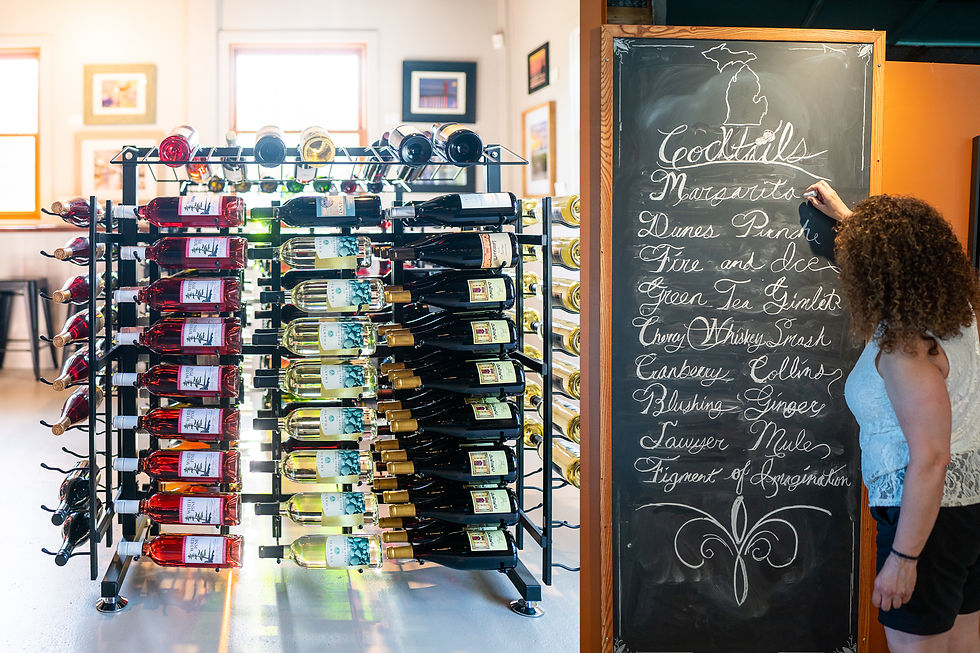 Cocktails
Margarita
Dunes
Fire and Ice
Green Tea Gimlet
Cherry Whiskey Smash
Cranberry Collins
Blushing Ginger
Sawyer Mule
Figment of Imagination